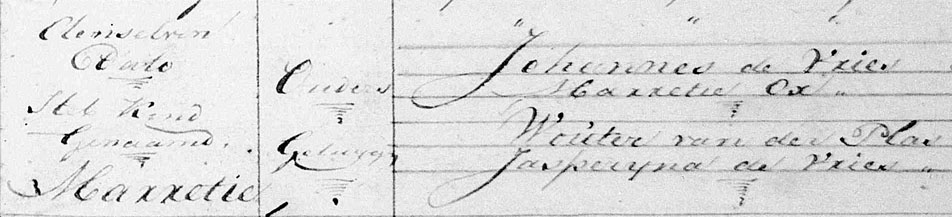 " " "
Eenselven
Dato
Het Kind
Genaamd.
Marretie
Ouders
Getuygen
Johannes de Vries
Marretie Ox "
Wouter van der Plas
Jasperyna de Vries "